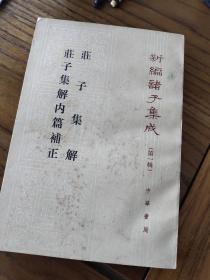 新編諸子集成
(第一輯)
中華書局
莊子集解
莊子集解内篇補正